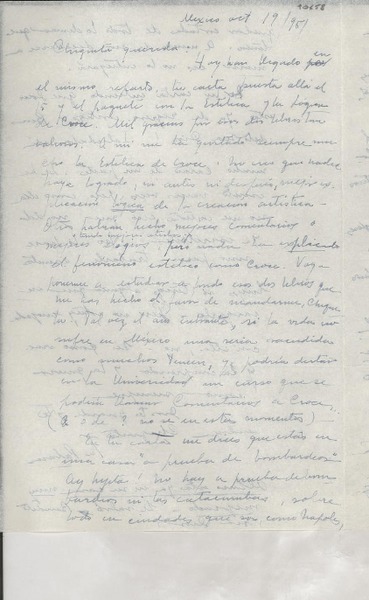 Mexico oct 19/951
Chiquita querida:
Hoy han llegado en
el mismo reparto, tu carta puesta allá el
5 y el paquete con la Estética y la Logica
de Croce. Mil gracias por esos dos libros tan
valiosos. A mi me ha gustado siempre mu-
cho la Estética de Croce. No creo que nadie
haya logrado, ni antes ni después, mejor ex-
plicación logica de la creación artistica.
Otros habrán hecho mejores comentarios
pero nunca han explicado
el fenómeno estético como Croce. Voy a
ponerme a estudiar a fondo esos dos libros que
me has hecho el favor de mandarme,
el año entrante, si la vida no
sufre en México una seria sacudida
como muchos temen, yo podría dictar
en la Universidad un curso que se
podría llamar Comentarios a Croce,
no se en estos momentos)
En tu carta me dices que estás en
una casa "a prueba de bombardeos"
Ay hijita! no hay a prueba de bom
bardeos ni las catacumbas, sobre
todo en ciudades que son como Napoles,